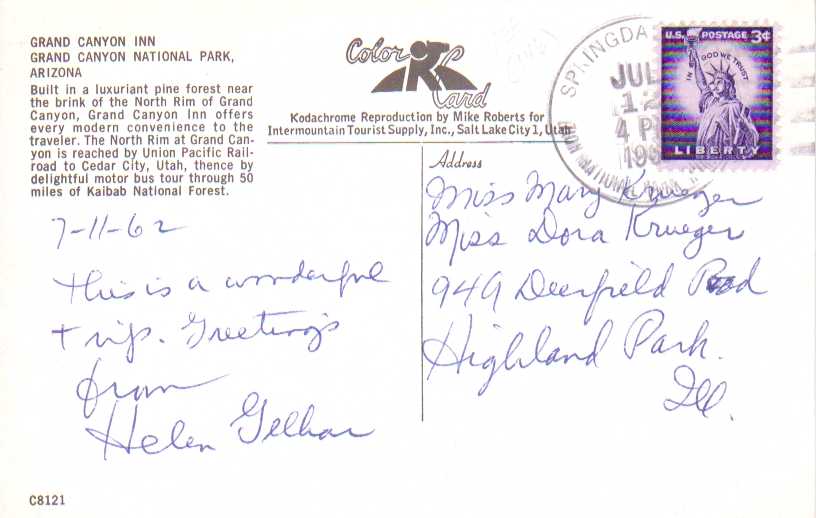 GRAND CANYON INN
GRAND CANYON NATIONAL PARK,
ARIZONA
Built in a luxuriant pine forest near
the brink of the North Rim of Grand
Canyon, Grand Canyon Inn offers
every modern convenience to the
traveler. The North Rim at Grand Can-
yon is reached by Union Pacific Rail-
road to Cedar City, Utah, thence by
delightful motor bus tour through 50
miles of Kaibab National Forest.
Color
Card
Kodachrome Reproduction by Mike Roberts for
Intermountain Tourist Supply, Inc., Salt Lake City 1, Utah
JUL
12
U.S. POSTAGE 3¢
IN GOD WE TRUST
LIBERTY
7-11-62
This is a wonderful
trip. Greetings
from
Helen
Address
Miss Mary Krueger
Miss Dora Krueger
949 Deerfield
Highland Park.
Ill.
C8121